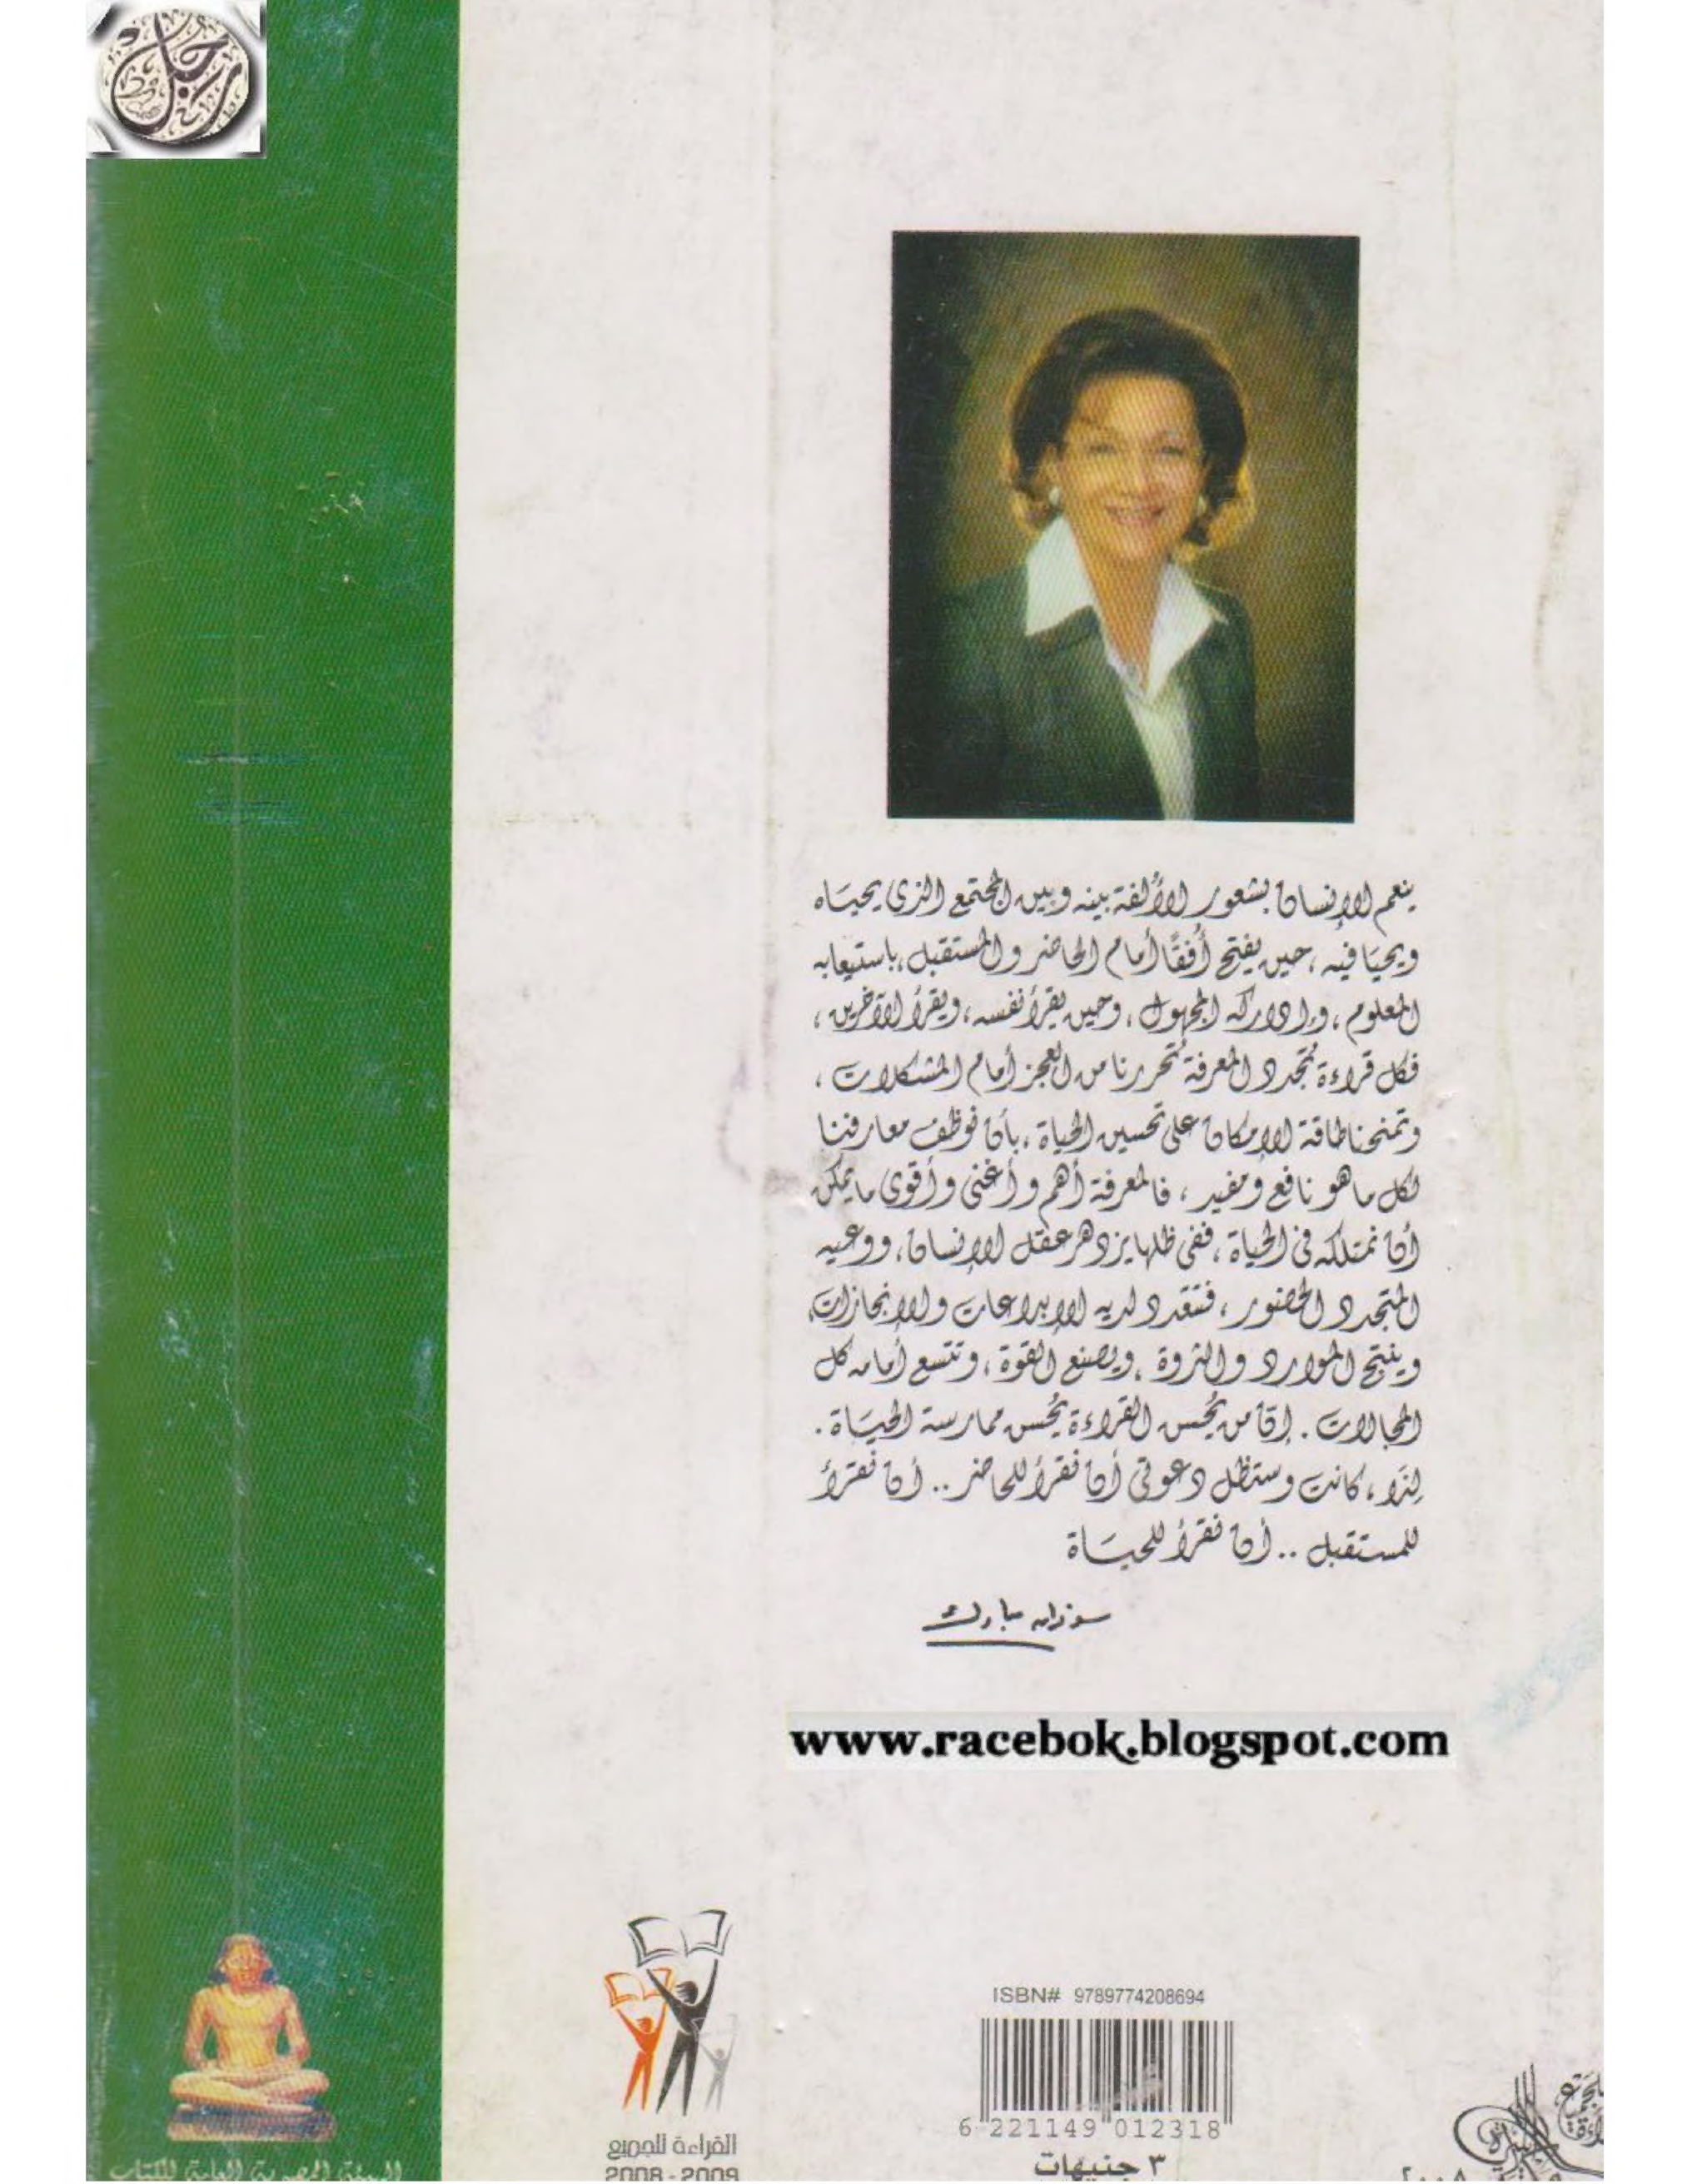 ينعم الإنسان بشعور الألفة بينه وبين المجتمع الذي يحياه
ويحيا فيه، حين يفتح أفقًا أمام الحاضر والمستقبل، باستيعابه
المعلوم، وإدراكه المجهول، وحين يقرأ نفسه، ويقرأ الآخرين،
فكل قراءة تُجدد المعرفة تُحررنا من العجز أمام المشكلات،
وتمنحنا طاقة الإمكان على تحسين الحياة، بأن نوظف معارفنا
لكل ما هو نافع ومفيد، فالمعرفة أهم وأغنى وأقوى ما يمكن
أن نمتلكه فى الحياة، ففى ظلها يزدهر عقل الإنسان، ووعيه
المتجدد الحضور، فتتعدد لديه الإبداعات والإنجازات،
وينتج الموارد والثروة، ويصنع القوة، وتتسع أمامه كل
المجالات. إن من يُحسن القراءة يُحسن ممارسة الحياة.
لِذَا، كانت وستظل دعوتى أن نقرأ للحاضر.. أن نقرأ
للمستقبل.. أن نقرأ للحياة
سوزان مبارك
www.racebok.blogspot.com
ISBN# 9789774208694
6 221149 012318
٣ جنيهات
القراءة للجميع
2008 - 2009
الهيئة المصرية العامة للكتاب